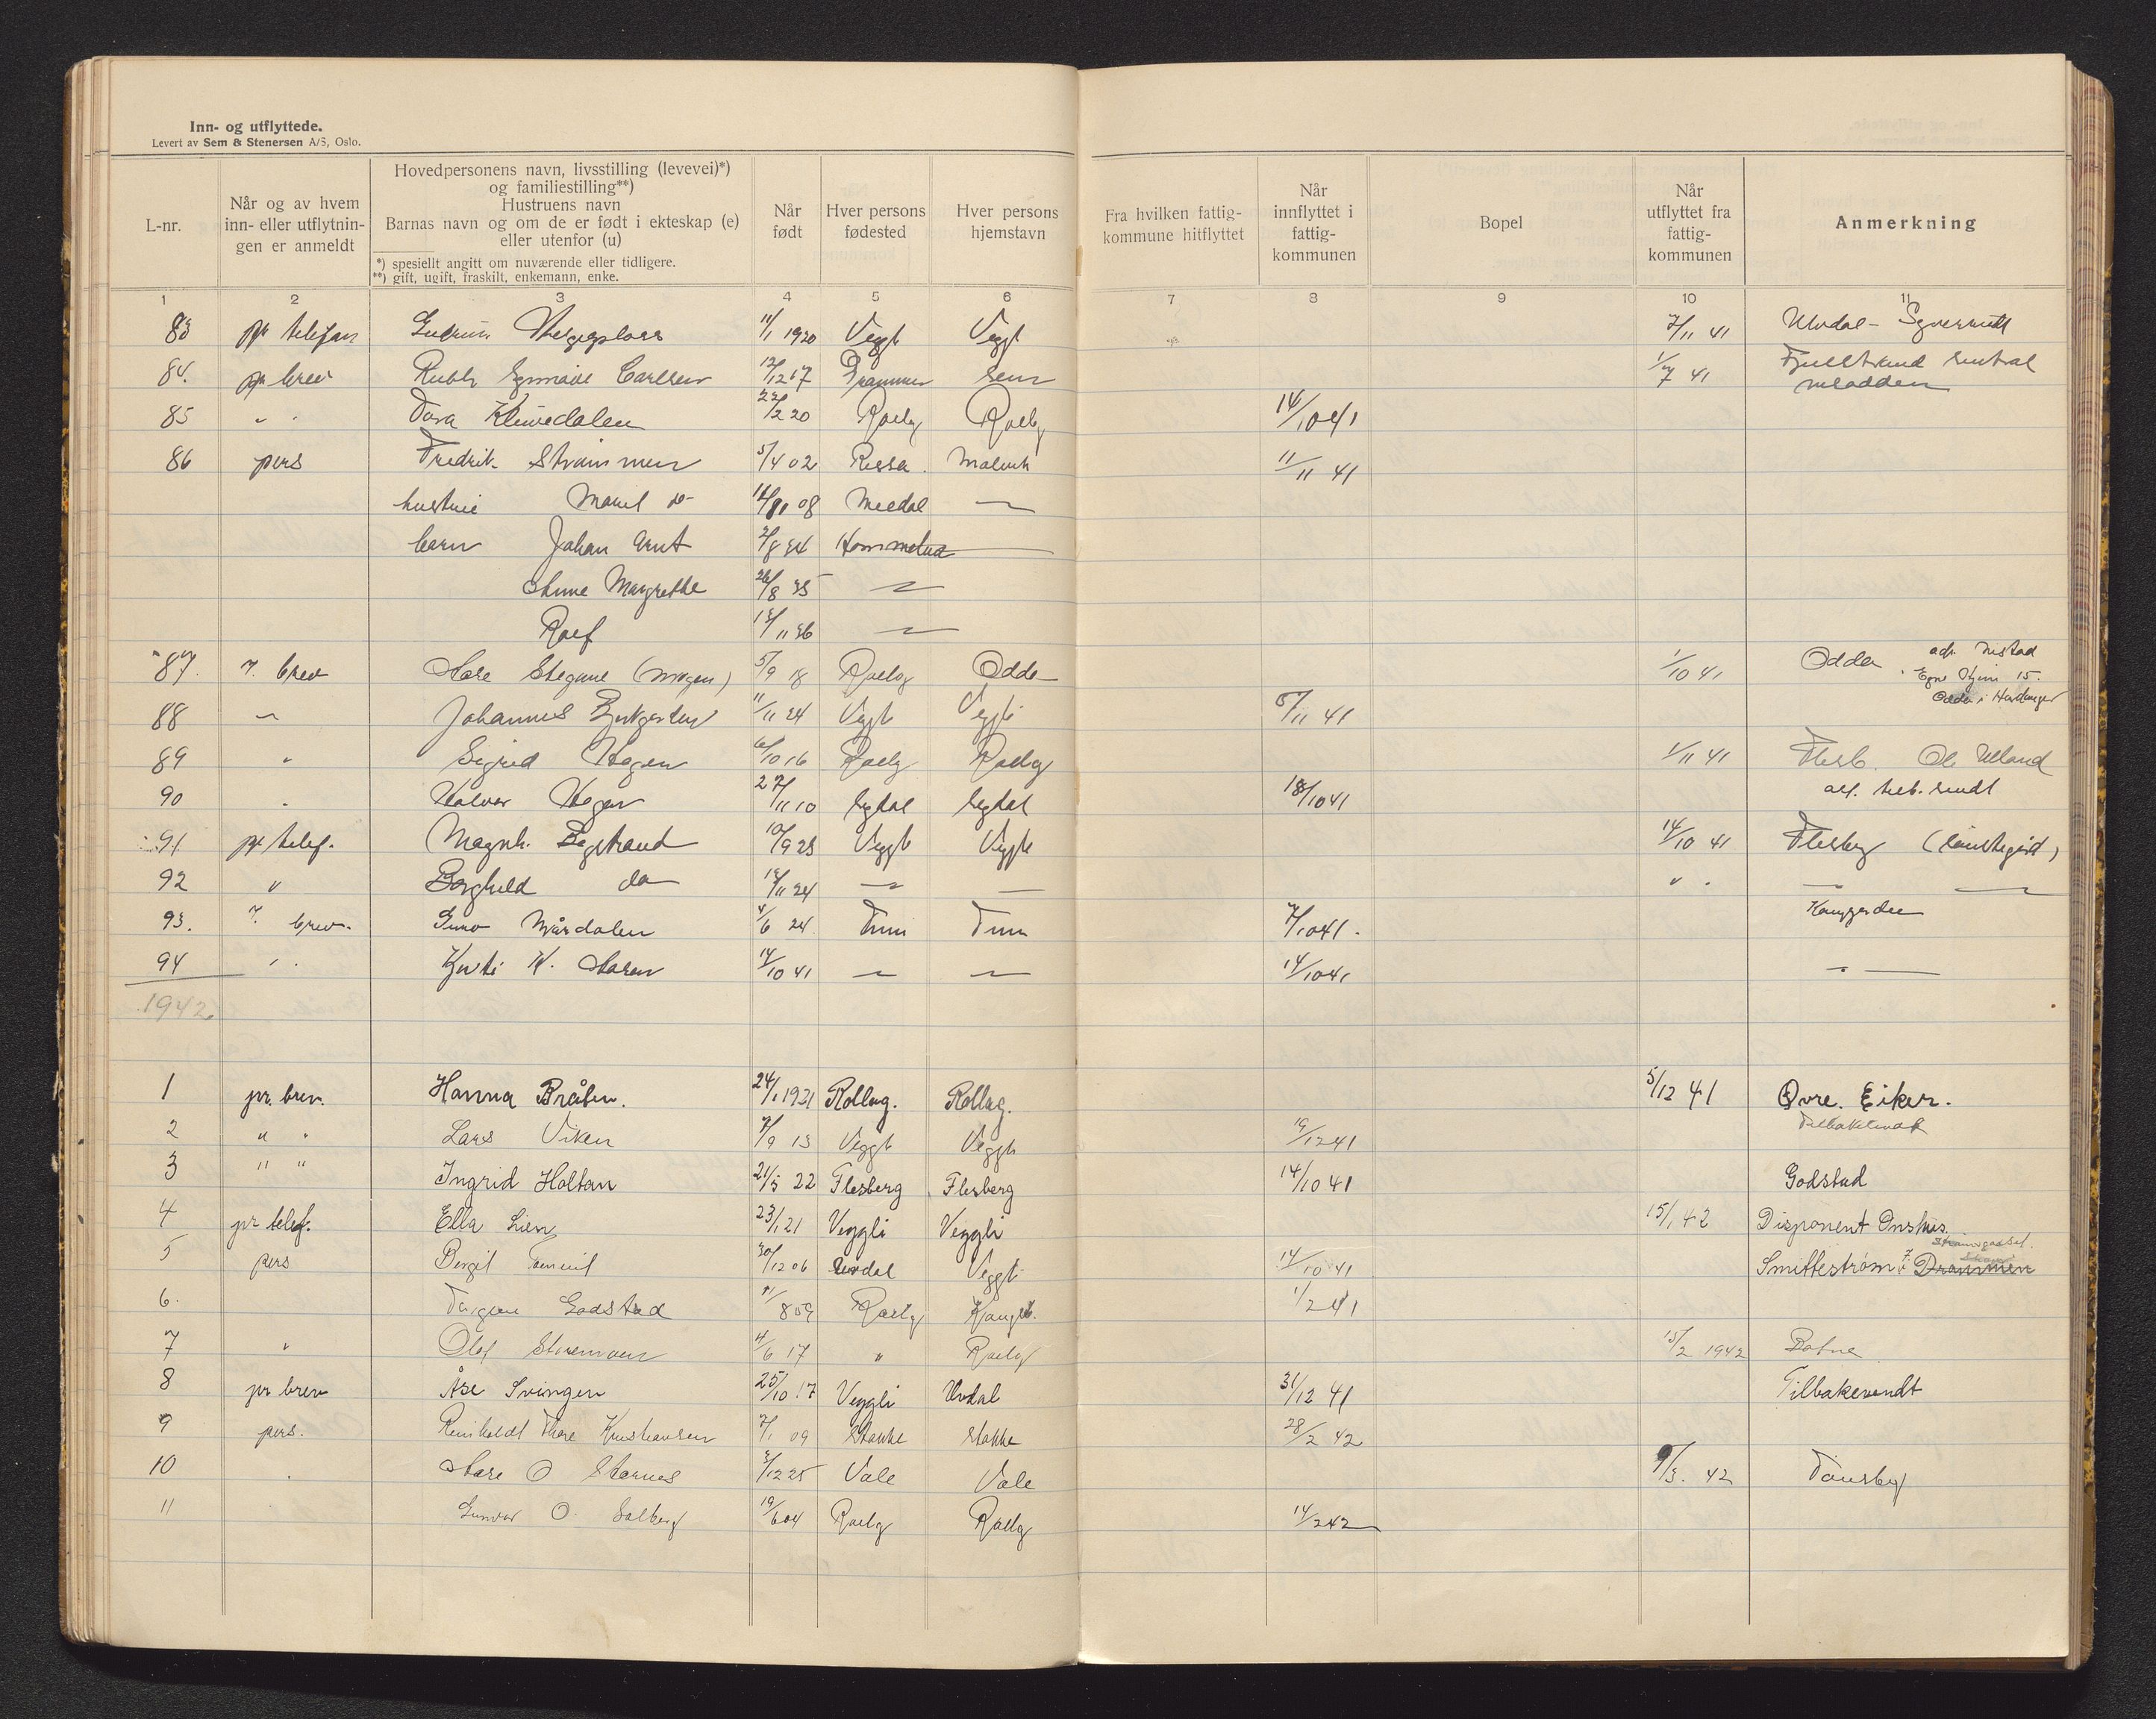 Inn- og utflyttede.
Levert av Sem & Stenersen A/S, Oslo.
L-nr.
Når og av hvem inn- eller utflytnin- gen er anmeldt
Hovedpersonens navn, livsstilling (levevei)*)
og familiestilling**)
Hustruens navn
Barnas navn og om de er født i ekteskap (e)
eller utenfor (u)
*) spesiellt angitt om nuværende eller tidligere.
**) gift, ugift, fraskilt, enkemann, enke.
Når født
Hver persons fødested
Hver persons hjemstavn
Fra hvilken fattig- kommune hitflyttet
Når innflyttet i fattig- kommunen
Bopel
Når utflyttet fra fattig- kommunen
Anmerkning
1 2 3 4 5 6 7 8 9 10 11
83 pr telefon Gudrun 11/1 1920 Veggli Veggli 7/11 41 Uvdal -
84. pr brev Carlsen 12/12 17 Drammen 1/7 41 Fjellstrand
Nesodden
85 " " Tora 22/2 20 Rollag Rollag 14/10 41
86 pers Fredrik Strømmen 5/4 02 Rissa Malvik 11/11 41
hustru do 08 Meldal —
barn Johan Arnt 2/8 34 Hommelvik
Anne Margrethe 26/8 35 —
Rolf 13/11 36 —
87. brev Kare Stegane (Mogen) 5/9 18 Rollag Odda 1/10 41 Odda
Odda i Hardanger
88 " Johannes 11/11 24 Veggli Veggli 5/11 41
89 " Sigrid Hagen 6/10 16 Rollag Rollag 1/11 41 Flesb.
90 " Halvor Hagen 27/11 10 Sigdal Sigdal 18/10 41
91 pr telef. Magnh. Bogstrand 10/9 23 Veggli Veggli 14/10 41 Flesberg
92 " Borghild do 12/11 24 — — " " —
93. brev. Guro Mårdalen 4/6 24 Tinn Tinn 7/10 41.
94 " . 14/10 41 — — 14/10 41 —
1942
1 pr. brev. Hanna Bråten. 24/1 1921 Rollag. Rollag. 5/12 41 Øvre. Eiker.
2 " " Lars Viken 7/9 13 Veggli Veggli 19/12 41 Tilbakevendt
3 " " Ingrid Holtan 21/5 22 Flesberg Flesberg 14/10 41 Godstad
4 pr telef. Ella Lien 23/1 21 Veggli Veggli 15/1 42 Disponent Onshus.
5 pers Bergit 30/12 06 Uvdal Veggli 14/10 41 Smittestrøm i Drammen
6. Godstad 8 59 Rollag Kongsb. 1/2 41
7 " Olaf 4/6 17 " Rollag 15/2 1942 Botne
8 pr brev Åse Svingen 25/10 17 Veggli Uvdal 31/12 41 Tilbakevendt
9 pers. Reinholdt Thore 7/1 09 Stokke Stokke 28/2 42
10 " Kare O 3/12 25 Våle Våle 9/3. 42 Tønsberg
11 Gunvor O. Solberg 19/6 04 Rollag Rollag 14/2 42